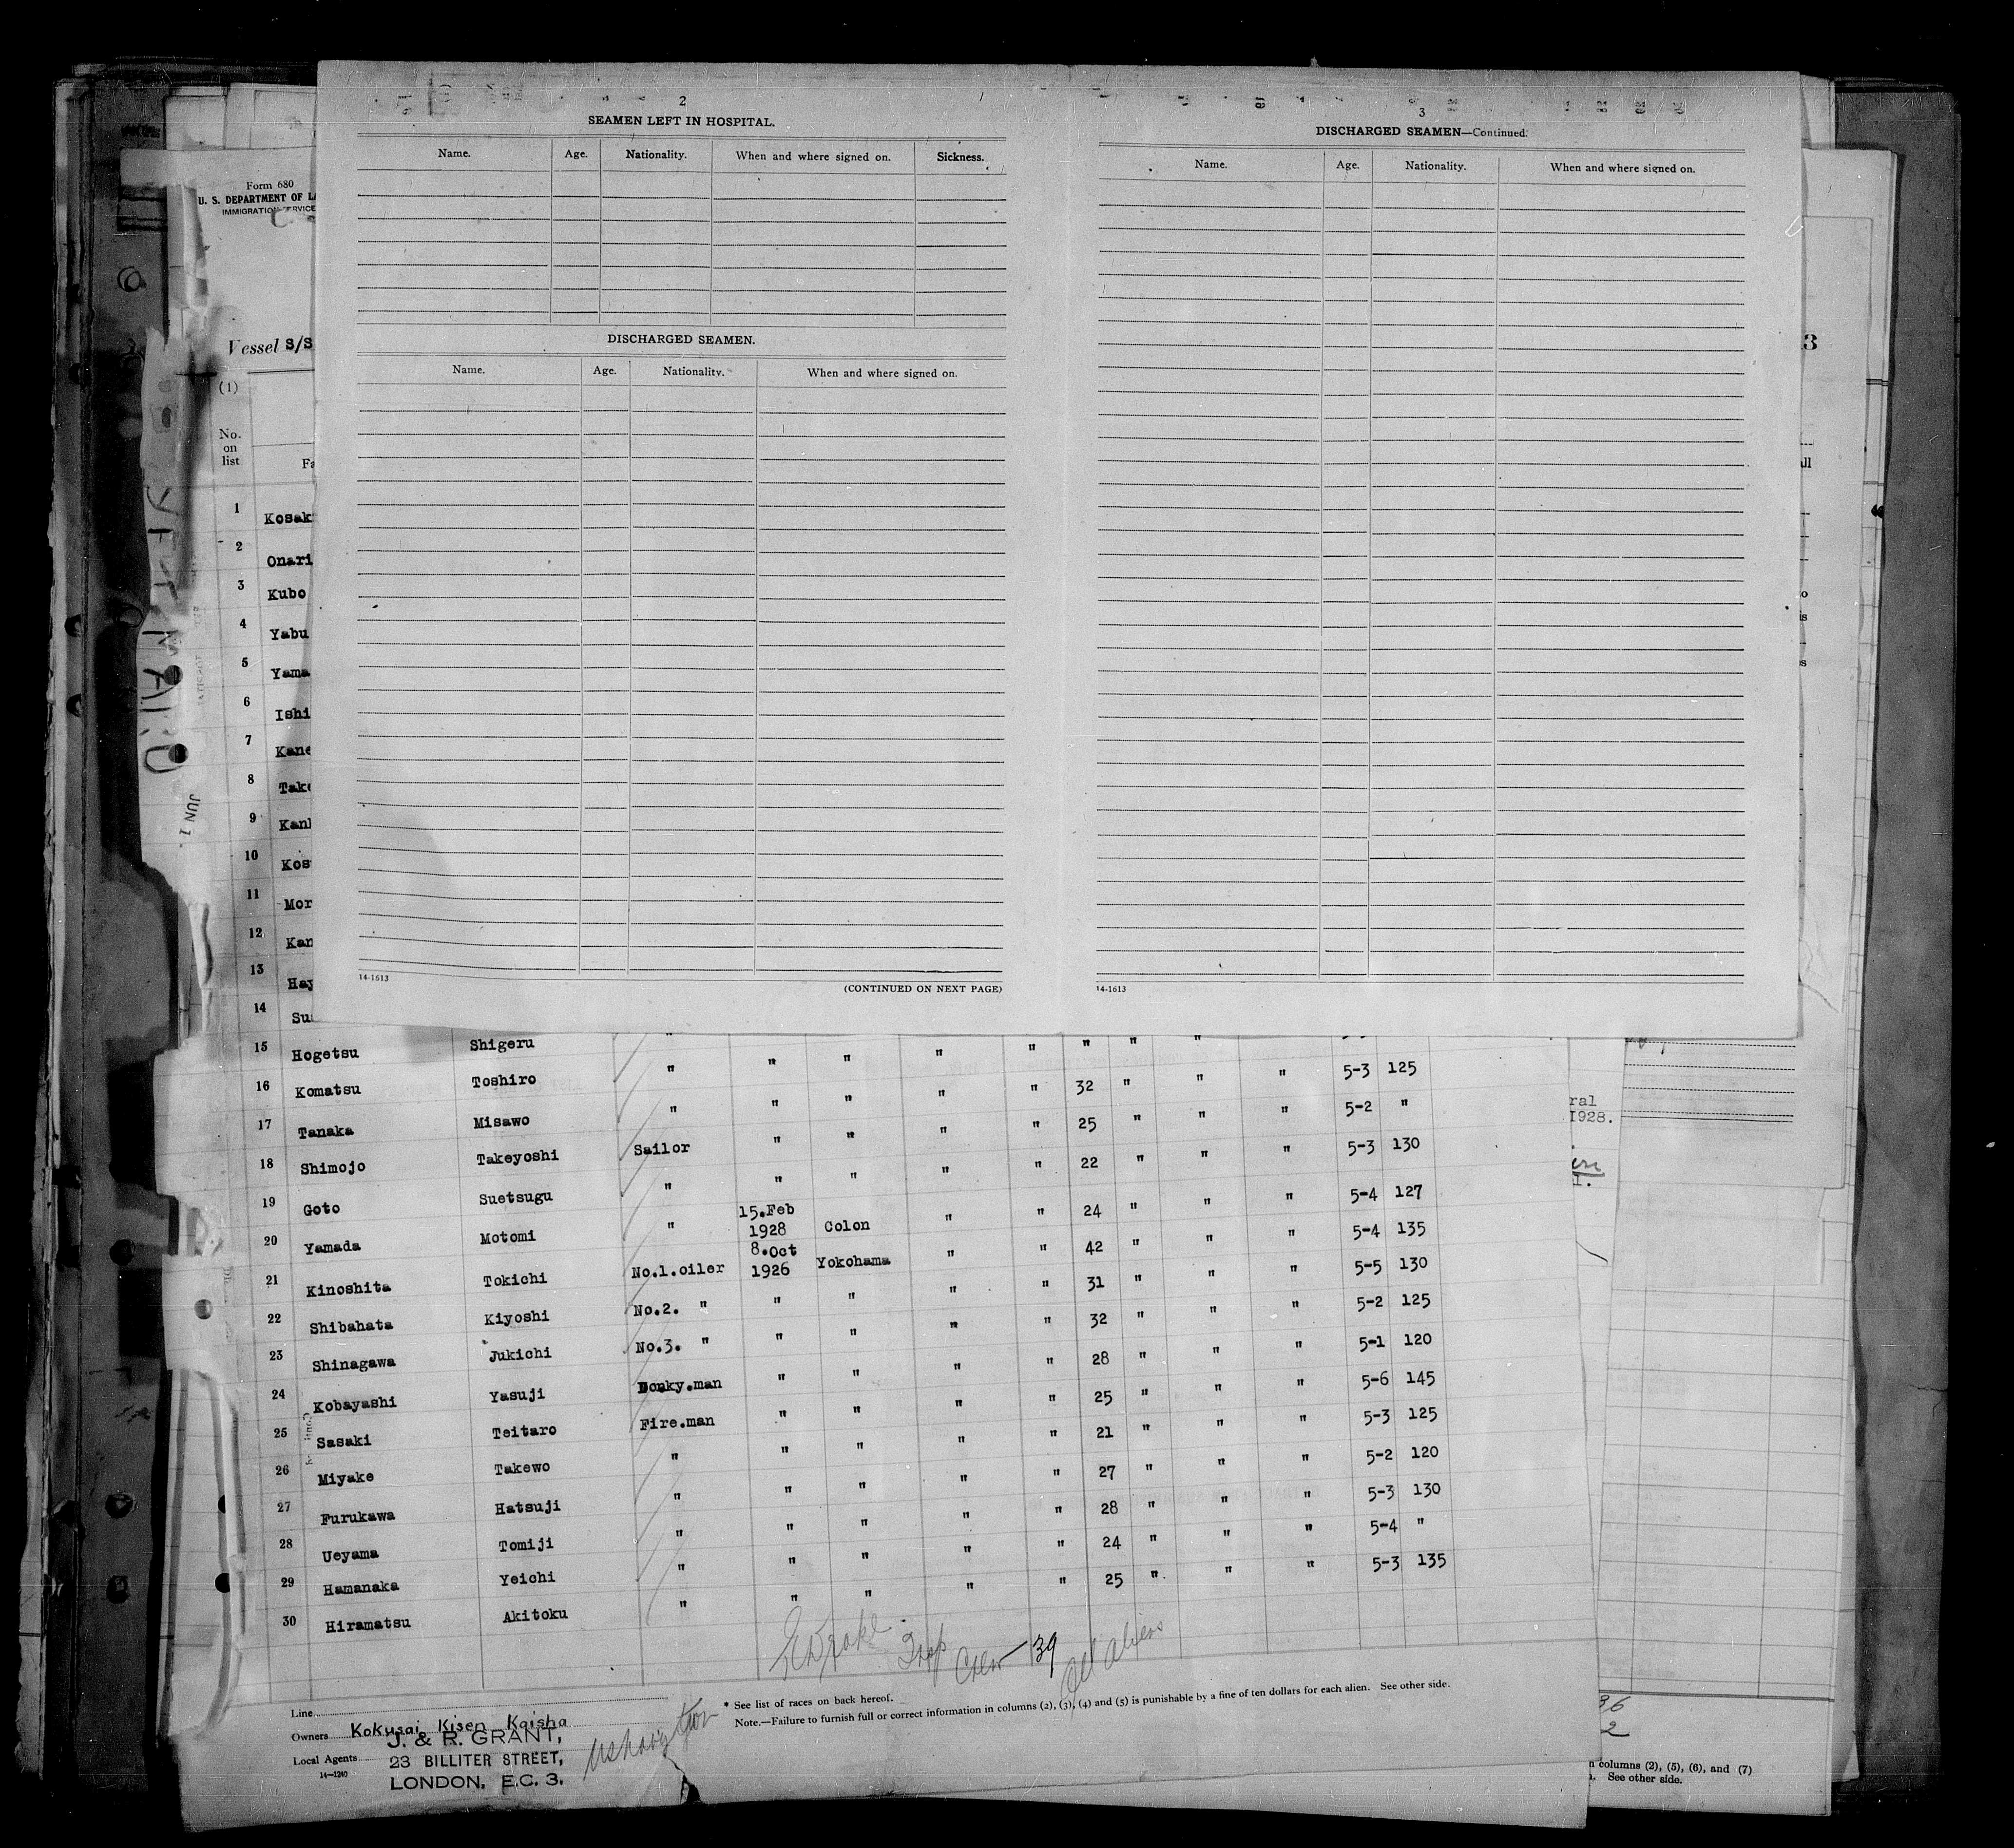 2
SEAMEN LEFT IN HOSPITAL.
Name. Age. Nationality. When and where signed on. Sickness.
DISCHARGED SEAMEN.
Name. Age. Nationality. When and where signed on.
14-1613
(CONTINUED ON NEXT PAGE)
3
DISCHARGED SEAMEN—Continued.
Name. Age. Nationality. When and where signed on.
14-1613
Form 680
U. S. DEPARTMENT OF LA
IMMIGRATION SERVICE
Vessel S/S
(1)
No.
on
list
Fa
1 Kosak
2 Onari
3 Kubo
4 Yabu
5 Yama
6 Ishi
7 Kane
8 Take
9 Kan
10 Kos
11 Mor
12 Kan
13 Hay
14 Su
15 Hogetsu Shigeru " " " " " " " "
16 Komatsu Toshiro " " " " " 32 " " " 5-3 125
17 Tanaka Misawo " " " " " 25 " " " 5-2 "
18 Shimojo Takeyoshi Sailor " " " " 22 " " " 5-3 130
19 Goto Suetsugu " " " " " 24 " " " 5-4 127
20 Yamada Motomi " 15.Feb 1928 Colon " " 42 " " " 5-4 135
21 Kinoshita Tokichi No.1.oiler 8.Oct 1926 Yokohama " " 31 " " " 5-5 130
22 Shibahata Kiyoshi No.2. " " " " " 32 " " " 5-2 125
23 Shinagawa Jukichi No.3. " " " " " 28 " " " 5-1 120
24 Kobayashi Yasuji Donky.man " " " " 25 " " " 5-6 145
25 Sasaki Teitaro Fire.man " " " " 21 " " " 5-3 125
26 Miyake Takewo " " " " " 27 " " " 5-2 120
27 Furukawa Hatsuji " " " " " 28 " " " 5-3 130
28 Ueyama Tomiji " " " " " 24 " " " 5-4 "
29 Hamanaka Yeichi " " " " " 25 " " " 5-3 135
30 Hiramatsu Akitoku " " "
Crew 39
All Aliens
* See list of races on back hereof.
Note.—Failure to furnish full or correct information in columns (2), (3), (4) and (5) is punishable by a fine of ten dollars for each alien. See other side.
Line
Owners Kokusai Kisen Kaisha
Local Agents
J. & R. GRANT,
23 BILLITER STREET,
LONDON, E.C. 3.
14-1240
MARU
JUN 1
3
ral
1928.
36
2
n columns (2), (5), (6), and (7)
See other side.